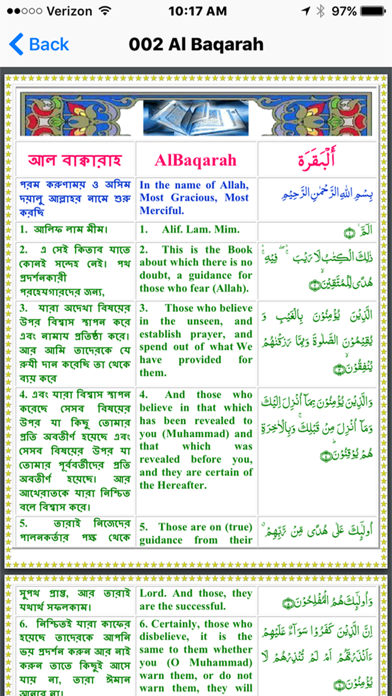 ●●○○○ Verizon 10:17 AM 97%
Back
002 Al Baqarah
আল বাক্বারাহ
AlBaqarah
أَلْبَقَرَة
পরম করুণাময় ও অসিম
দয়ালু আল্লাহর নামে শুরু
করছি
In the name of Allah,
Most Gracious, Most
Merciful.
بِسْمِ اللهِ الرَّحْمٰنِ الرَّحِيْمِ
1. আলিফ লাম মীম।
1. Alif. Lam. Mim.
الٓمّٓ ۚ﴿۱﴾
2. এ সেই কিতাব যাতে
কোনই সন্দেহ নেই। পথ
প্রদর্শনকারী
পরহেযগারদের জন্য,
2. This is the Book
about which there is no
doubt, a guidance for
those who fear (Allah).
ذٰلِكَ الْكِتٰبُ لَا رَيْبَ ۛۚ فِيْهِ ۛۚ
هُدًى لِّلْمُتَّقِيْنَ ۙ﴿۲﴾
3. যারা অদেখা বিষয়ের
উপর বিশ্বাস স্থাপন করে
এবং নামায প্রতিষ্ঠা করে।
আর আমি তাদেরকে যে
রুযী দান করেছি তা থেকে
ব্যয় করে
3. Those who believe
in the unseen, and
establish prayer, and
spend out of what We
have provided for
them.
الَّذِيْنَ يُؤْمِنُوْنَ بِالْغَيْبِ وَ
يُقِيْمُوْنَ الصَّلٰوةَ وَمِمَّا رَزَقْنٰهُمْ
يُنْفِقُوْنَ ۙ﴿۳﴾
4. এবং যারা বিশ্বাস স্থাপন
করেছে সেসব বিষয়ের
উপর যা কিছু তোমার
প্রতি অবতীর্ণ হয়েছে এবং
সেসব বিষয়ের উপর যা
তোমার পূর্ববর্তীদের প্রতি
অবতীর্ণ হয়েছে। আর
আখেরাতকে যারা নিশ্চিত
বলে বিশ্বাস করে।
4. And those who
believe in that which
has been revealed to
you (Muhammad) and
that which was
revealed before you,
and they are certain of
the Hereafter.
وَالَّذِيْنَ يُؤْمِنُوْنَ بِمَآ اُنْزِلَ اِلَيْكَ
وَمَآ اُنْزِلَ مِنْ قَبْلِكَ ۚ وَبِالْاٰخِرَةِ
هُمْ يُوْقِنُوْنَ ؕ﴿۴﴾
5. তারাই নিজেদের
পালনকর্তার পক্ষ থেকে
5. Those are on (true)
guidance from their
اُولٰٓئِكَ عَلٰى هُدًى مِّنْ رَّبِّهِمْ ۙ
সুপথ প্রাপ্ত, আর তারাই
যথার্থ সফলকাম।
Lord. And those, they
are the successful.
وَاُولٰٓئِكَ هُمُ الْمُفْلِحُوْنَ ﴿۵﴾
6. নিশ্চিতই যারা কাফের
হয়েছে তাদেরকে আপনি
ভয় প্রদর্শন করুন আর নাই
করুন তাতে কিছুই আসে
যায় না, তারা ঈমান
আনবে না।
6. Certainly, those who
disbelieve, it is the
same to them whether
you (O Muhammad)
warn them, or do not
warn them, they will
اِنَّ الَّذِيْنَ كَفَرُوْا سَوَآءٌ عَلَيْهِمْ
ءَاَنْذَرْتَهُمْ اَمْ لَمْ تُنْذِرْهُمْ لَا